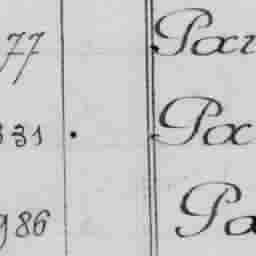 77 Pai
331 Pac
986 Pa